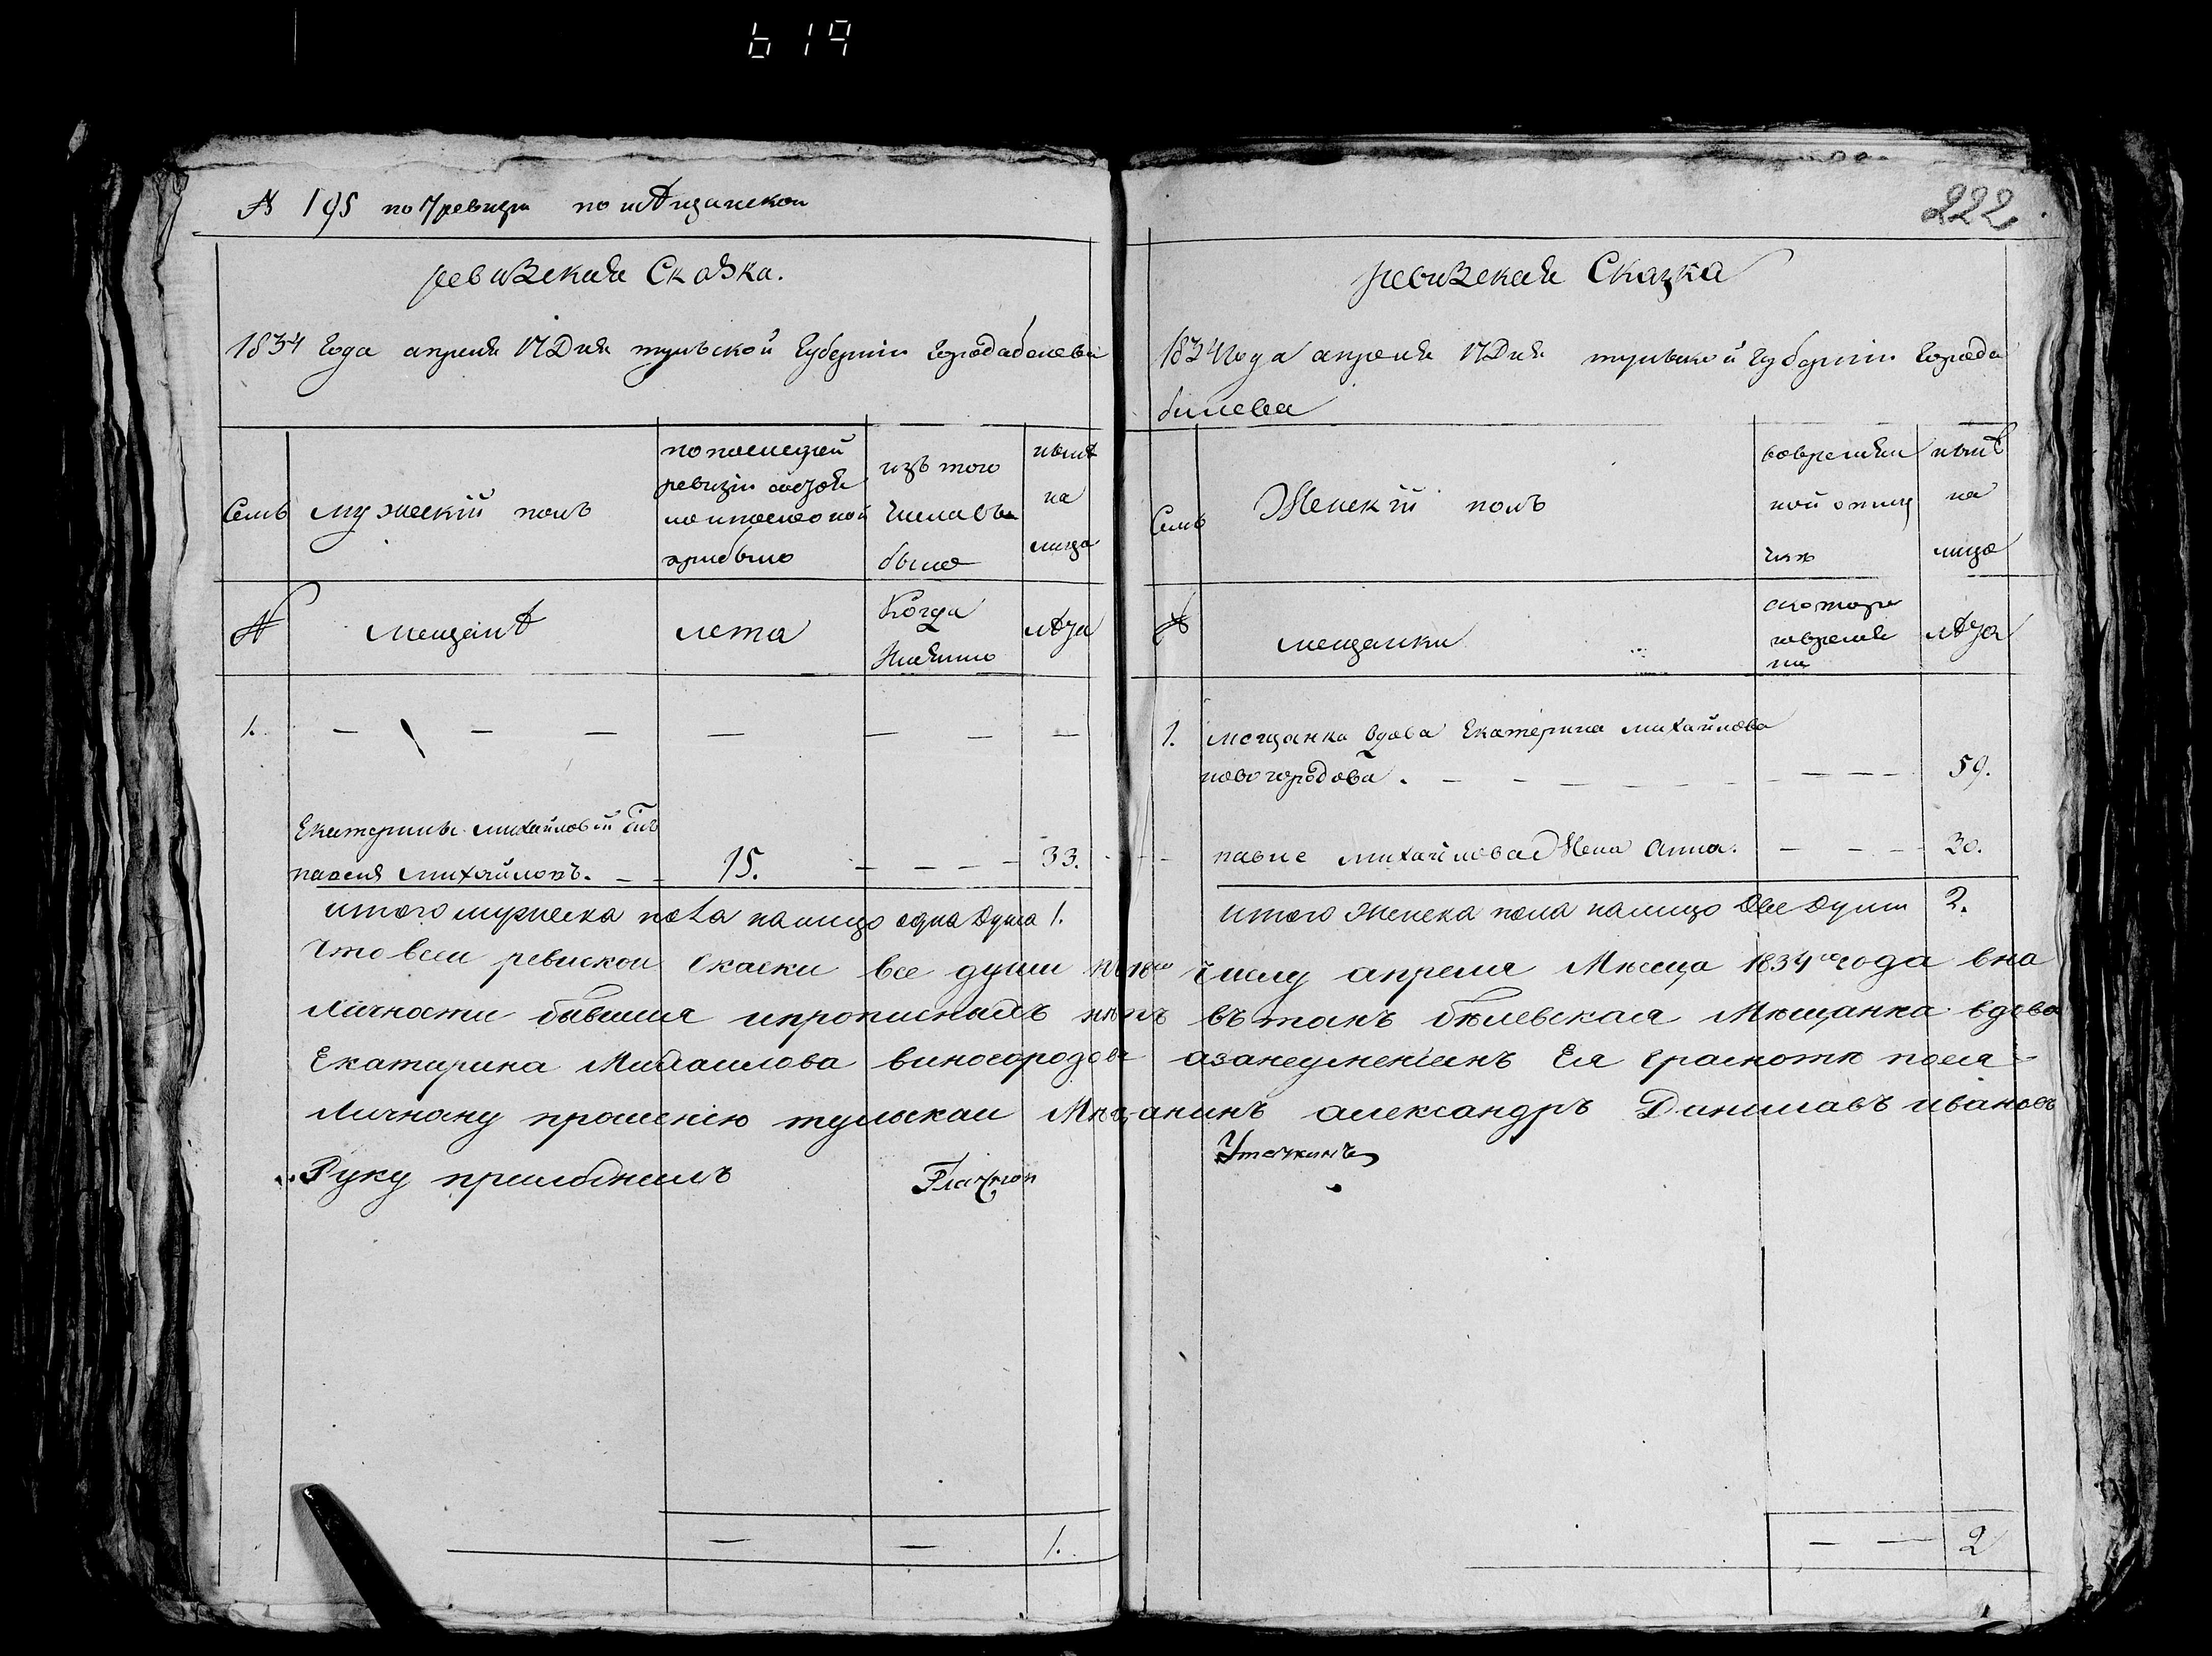 619
№ 195 по 7 ревизи по мѣщанскои
ревизская Сказка.
1834 Года апреля 17 Дня тульской Губернiи города белева
Семь
мужескiй полъ
по последней
ревизiи состоя
ло и после оной
прибыло
изъ того
числа вы
было
нынѣ
на
лицо
№
мещанѣ
лета
Когда
имянно
лѣта
1.
Екатерины михайловой Снъ
павелъ михайловъ. 15. 33.
итого мужеска пола налицо одна душа 1.
1.
222
ревизская Сказка
1834 Года апреля 17 Дня тульской губернiи города
билева
Семь
Женскiй полъ
во времян
ной отлу
чкѣ
нынѣ
на
лицо
№
мещанки
с котора
го времян
ни
лѣта
1. мещанка вдова Екатерина михайлова
новогородова. 59.
павла михайлова Жена Анна. 30.
итого женска пола налицо две души 2.
Что всеи ревискои скаски все души к числу апреля Месеца 1834 го года вна
личности бывшия ипрописнадъ нѣтъ въ томъ бѣлевская Мѣщанка вдова
Екатарина Михаилова виногородова азанеумениемъ Ея грамотѣ поея
личному прошенiю тульскаи Мещанинъ александръ Данилавъ ивановъ
Руку приложилъ
Уточкинъ
2